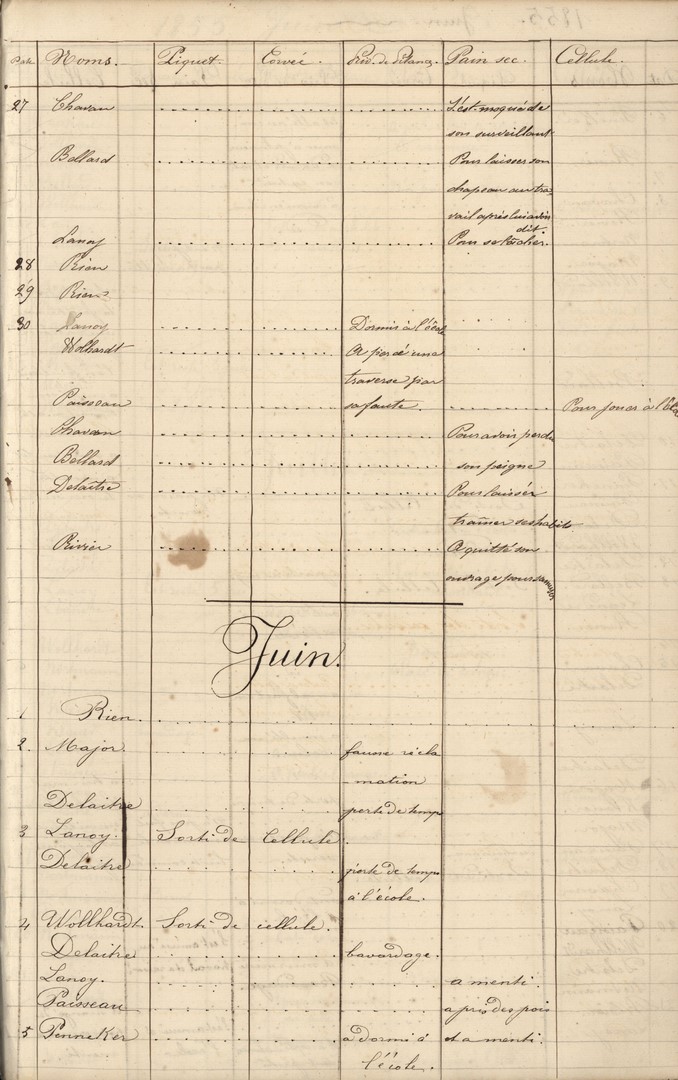 Juin 1855.
Date Noms. Piquet. Corvée. Priv. de pitance. Pain sec. Cellule.
27 Chavan S'est moqué de
son surveillant
Bellard Pour laisser son
chapeau au tra-
vail après lui avoir
dit.
Lanoy Pour se fâcher.
28 Rien
29 Rien
30 Lanoy Dormir à l'école
Wolhardt A perdu une
traverse par
Paisseau sa faute. Pour jouer à l'école
Chavan Pour avoir perdu
Bellard son peigne
Delaitre Pour laisser
traîner ses habits
Rivier A quitté son
ouvrage pour s'amuser
Juin.
1 Rien.
2. Major. fausse récla
-mation
Delaitre perte de temp
3 Lanoy. Sorti de Cellule.
Delaitre perte de temps
à l'école.
4 Wollhardt. Sorti de cellule.
Delaitre bavardage.
Lanoy. a menti.
Paisseau a pris des pois
5 Penneker a dormi à et a menti.
l'école.